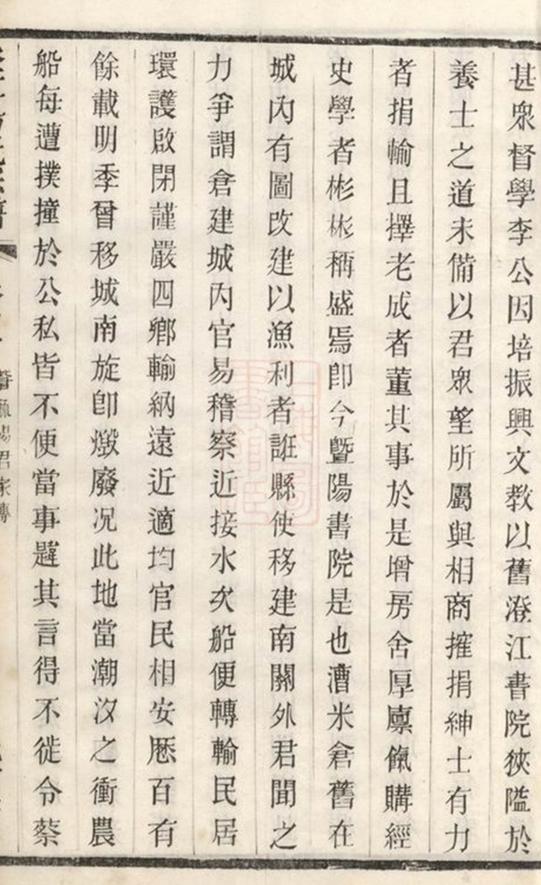 甚眾督學李公因培振興文教以舊澄江書院狹隘於
養士之道未備以君眾望所屬與相商搉捐紳士有力
者捐輸且擇老成者董其事於是增房舍厚廪餼購經
史學者彬彬稱盛焉即今暨陽書院是也漕米倉舊在
城內有圖改建以漁利者誑縣使移建南關外君聞之
力爭謂倉建城內官易稽察近接水次船便轉輸民居
環護啟閉謹嚴四鄉輸納遠近適均官民相安厯百有
餘載明季曾移城南旋即燬廢况此地當潮汐之衝農
船每遭撲撞於公私皆不便當事韙其言得不徙令蔡